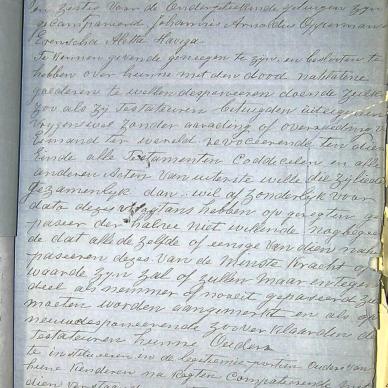 en zestig voor de Ondergeteekende getuigen zyn
gecompareerd Johannis Arnoldus Opperman
Everocha Aletta Haviga
Te kennen gevende geneegen te zyn, en besloten te
hebben over hunne met den dood natelatene
goederen te willen desponeeren doende zulks
zoo als zy Testateuren betuigden uit eigen
vrye wil zonder aanrading of overreeding
Iemand ter wereld revoceerende ten dien
Einde alle Testamenten Coddicelen en alle
anderen Acten van uiterste wille die zy lieden
gezamenlyk dan wil afzonderlyk voor
dato dezes hebben op gerigt en ge
paseer der halve niet willende nog begee
de dat alle de zelfde of eenige van dien na
paseeren dezes van de minste kracht of
waarde zyn zal of zullen maar en tegen
deel als nimmer of nooit gepaseerd zu
moeten worden aangemerkt en als op
nieuw desponeerende zoo verklaarden de
Testateuren hunne Ouders
te institueeren en de legitieme portien Ouders van
hune kinderen na Regten Competeerende